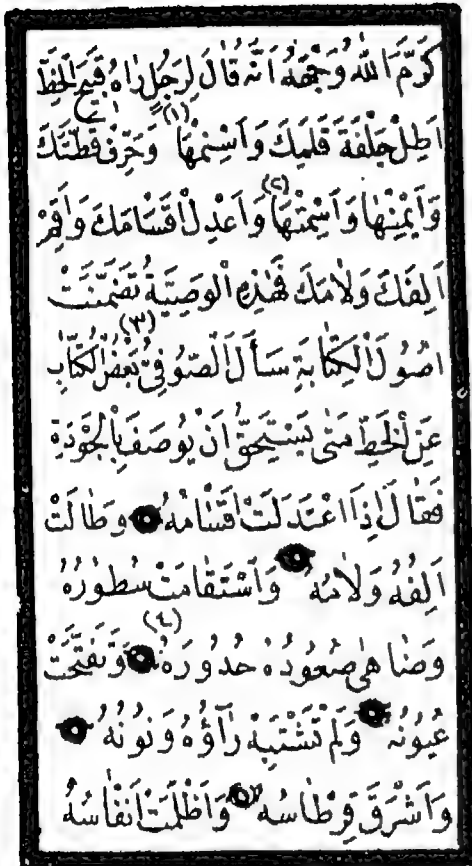 كَرَّمَ اللهُ وَجْهَهُ اَنَّهُ قَالَ لِرَجُلٍ رَاٰهُ قَبِيحَ الْخَطِّ
اَطِلْ جِلْفَةَ قَلَمِكَ وَاَسْمِنْهَا (١) وَحَرِّفْ قَطَّتَكَ
وَاَيْمِنْهَا وَاَسْمِتْهَا (٢) وَاَعْدِلْ اَقْسَامَكَ وَاَقِمْ
اَلِفَكَ وَلَامَكَ فَهٰذِهِ الْوَصِيَّةُ تَضَمَّنَتْ
اُصُولَ الْكِتَابَةِ (٣) سَأَلَ الصُّوفِيَّ بَعْضُ الْكُتَّابِ
عَنِ الْخَطِّ مَتٰى يَسْتَحِقُّ اَنْ يُوصَفَ بِالْجَوْدَةِ
فَقَالَ اِذَا اعْتَدَلَتْ اَقْسَامُهُ وَطَالَتْ
اَلِفُهُ وَلَامُهُ وَاسْتَقَامَتْ سُطُورُهُ
وَضَاهٰى صُعُودُهُ حُدُورَهُ (٤) وَتَفَتَّحَتْ
عُيُونُهُ وَلَمْ تَشْتَبِهْ رَآؤُهُ وَنُونُهُ
وَاَشْرَقَ قِرْطَاسُهُ (٥) وَاَظْلَمَتْ اَنْقَاسُهُ